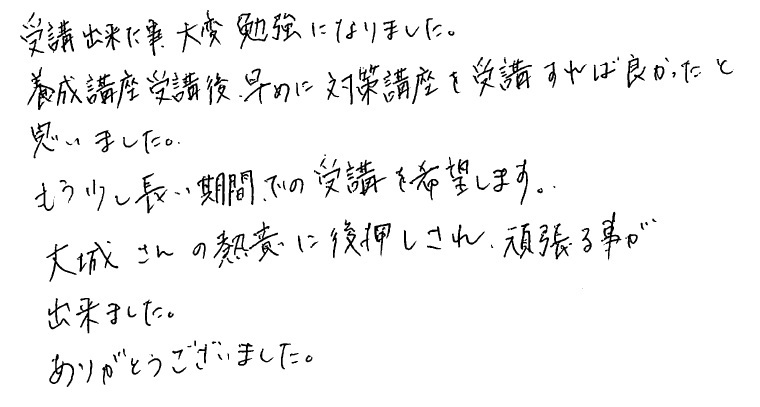 受講出来た事、大変勉強になりました。
養成講座受講後、早めに対策講座を受講すれば良かったと
思いました。
もう少し長い期間、での受講を希望します。
大城さんの熱意に後押しされ、頑張る事が
出来ました。
ありがとうございました。